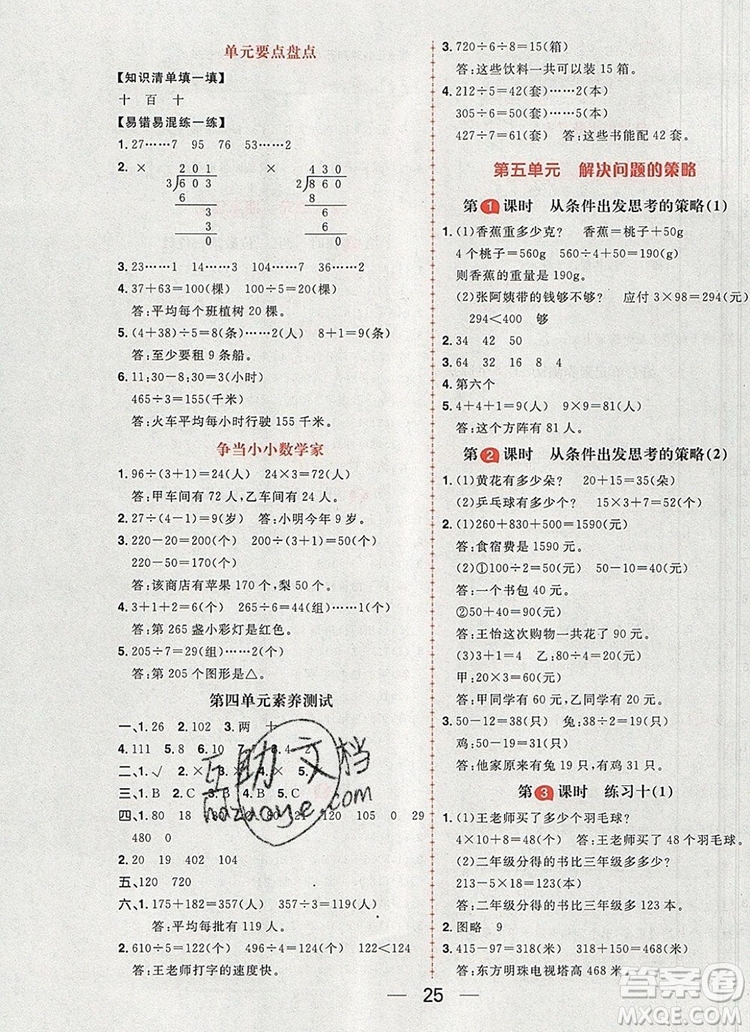 单元要点盘点
【知识清单填一填】
十 百 十
【易错易混练一练】
1. 27……7 95 76 53……2
2. × 201 × 430
3)603 2)860
6 8
3 6
3 6
0 0
3. 23……1 14 203……1 124……1
4. 37+63=100(棵) 100÷5=20(棵)
答:平均每个班植树 20 棵。
5. (4+38)÷5=8(条)……2(人) 8+1=9(条)
答:至少要租 9 条船。
6. 11:30-8:30=3(小时)
465÷3=155(千米)
答:火车平均每小时行驶 155 千米。
争当小小数学家
1. 96÷(3+1)=24(人) 24×3=72(人)
答:甲车间有 72 人,乙车间有 24 人。
2. 27÷(4-1)=9(岁) 答:小明今年 9 岁。
3. 220-20=200(个) 200÷(3+1)=50(个)
220-50=170(个)
答:该商店有苹果 170 个,梨 50 个。
4. 3+1+2=6(个) 265÷6=44(组)……1(个)
答:第 265 盏小彩灯是红色。
5. 205÷7=29(组)……2(个)
答:第 205 个图形是△。
第四单元素养测试
一、1. 26 2. 102 3. 两 十
4. 111 5. 8 6.
二、1. √
三、1. B 2. C 3. B
四、1.
105 0 29
480 0
2. 20 19 304 102
五、120 720
六、1. 175+182=357(个) 357÷3=119(个)
答:平均每批有 119 个。
2. 610÷5=122(个) 372÷3=124(个) 122<124
答:王老师打字的速度快。
3. 720÷6÷8=15(箱)
答:这些饮料一共可以装 15 箱。
4. 212÷5=42(套)……2(本)
305÷6=50(套)……5(本)
637÷7=91(套) 答:这些书能配 42 套。
第五单元 解决问题的策略
第1课时 从条件出发思考的策略(1)
1. (1)香蕉重多少克? 香蕉=桃子+50g
4 个桃子=560g 560÷4+50=190(g)
则香蕉的重量是 190g。
(2)张阿姨带的钱够不够? 应付 3×98=294(元)
294<400 够
2. 34 42 50
3. 64 32 16 8 4
4. 第六个
5. 4+4+1=9(人) 9×9=81(人)
答:这个方阵有 81 人。
第2课时 从条件出发思考的策略(2)
1. (1)黄花有多少朵? 20+15=35(朵)
(2)乒乓球有多少个? 15×3+2=47(个)
2. (1)260+830+500=1590(元)
答:食宿费是 1590 元。
(2)①100÷5×2=40(元)
答:一个书包 40 元。
②50+40=90(元)
答:王怡这次购物一共花了 90 元。
(3)3+1=4 乙:80÷4=20(元)
甲:20×3=60(元)
答:甲同学花了 60 元,乙同学花了 20 元。
3. 50-12=38(只) 兔:38÷2=19(只)
鸡:19+12=31(只)
答:他家原来有兔 19 只,有鸡 31 只。
第3课时 练习十(1)
1. (1)王老师买了多少个羽毛球?
4×10+8=48(个) 答:王老师买了 48 个羽毛球。
(2)二年级分得的书比三年级多多少?
213-5×15=138(本)
答:二年级分得的书比三年级多 138 本。
2. 图略 9
3. 415-97=318(米) 318+150=468(米)
答:东方明珠电视塔高 468 米。
25
互助文档
hdzaoye.com
答案圈
MXQE.COM